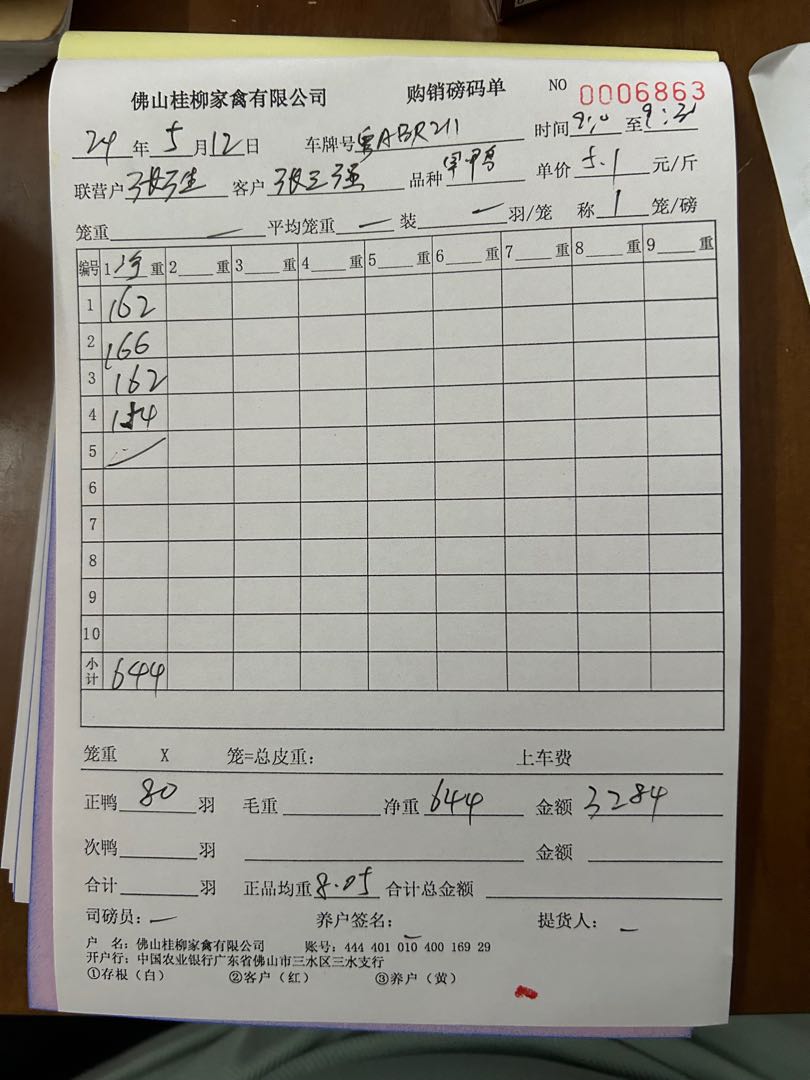 佛山桂柳家禽有限公司 购销磅码单 NO 0006863
24年5月12日 车牌号粤ABR211 时间9:10至9:31
联营户 客户张三强 品种 鸭 单价5.1元/斤
笼重 — 平均笼重 — 装 — 羽/笼 称1笼/磅
编号 1净重 2 重 3 重 4 重 5 重 6 重 7 重 8 重 9 重
1 162
2 166
3 162
4 154
5
6
7
8
9
10
小计 644
笼重 X 笼=总皮重: 上车费
正鸭 80 羽 毛重 净重 644 金额 3284
次鸭 羽 金额
合计 羽 正品均重 8.05 合计总金额
司磅员: — 养户签名: — 提货人: —
户 名: 佛山桂柳家禽有限公司 账号: 444 401 010 400 169 29
开户行: 中国农业银行广东省佛山市三水区三水支行
①存根（白） ②客户（红） ③养户（黄）